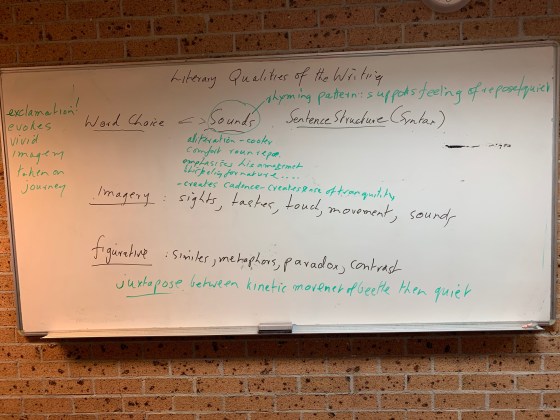 Literary Qualities of the Writing
rhyming pattern: supports feeling of repose/quiet
exclamation!
evokes
vivid
imagery
taken on
journey
Word Choice < > Sounds
Sentence Structure (Syntax)
aliteration - cooter
comfort
emphasises his amazement
for nature....
- creates cadence - creates sense of tranquility
Imagery : sights, tastes, touch, movement, sounds
figurative : similes, metaphors, paradox, contrast
juxtapose between kinetic movement of beetle then quiet